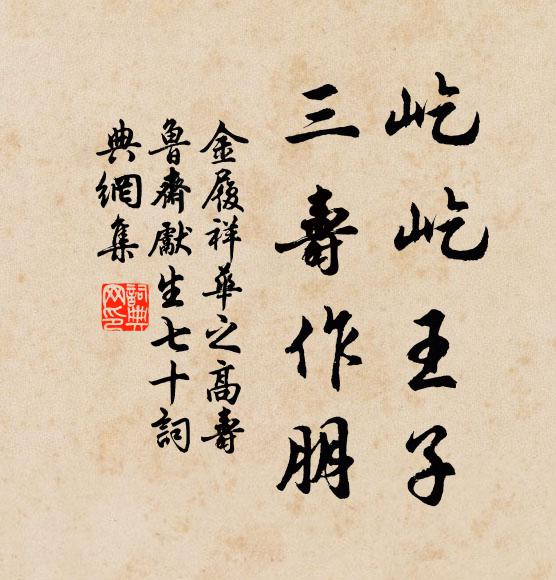 屹屹王子
三壽作朋
金履祥華之高壽
魯齋獻生七十詞
典網集
詞典網印